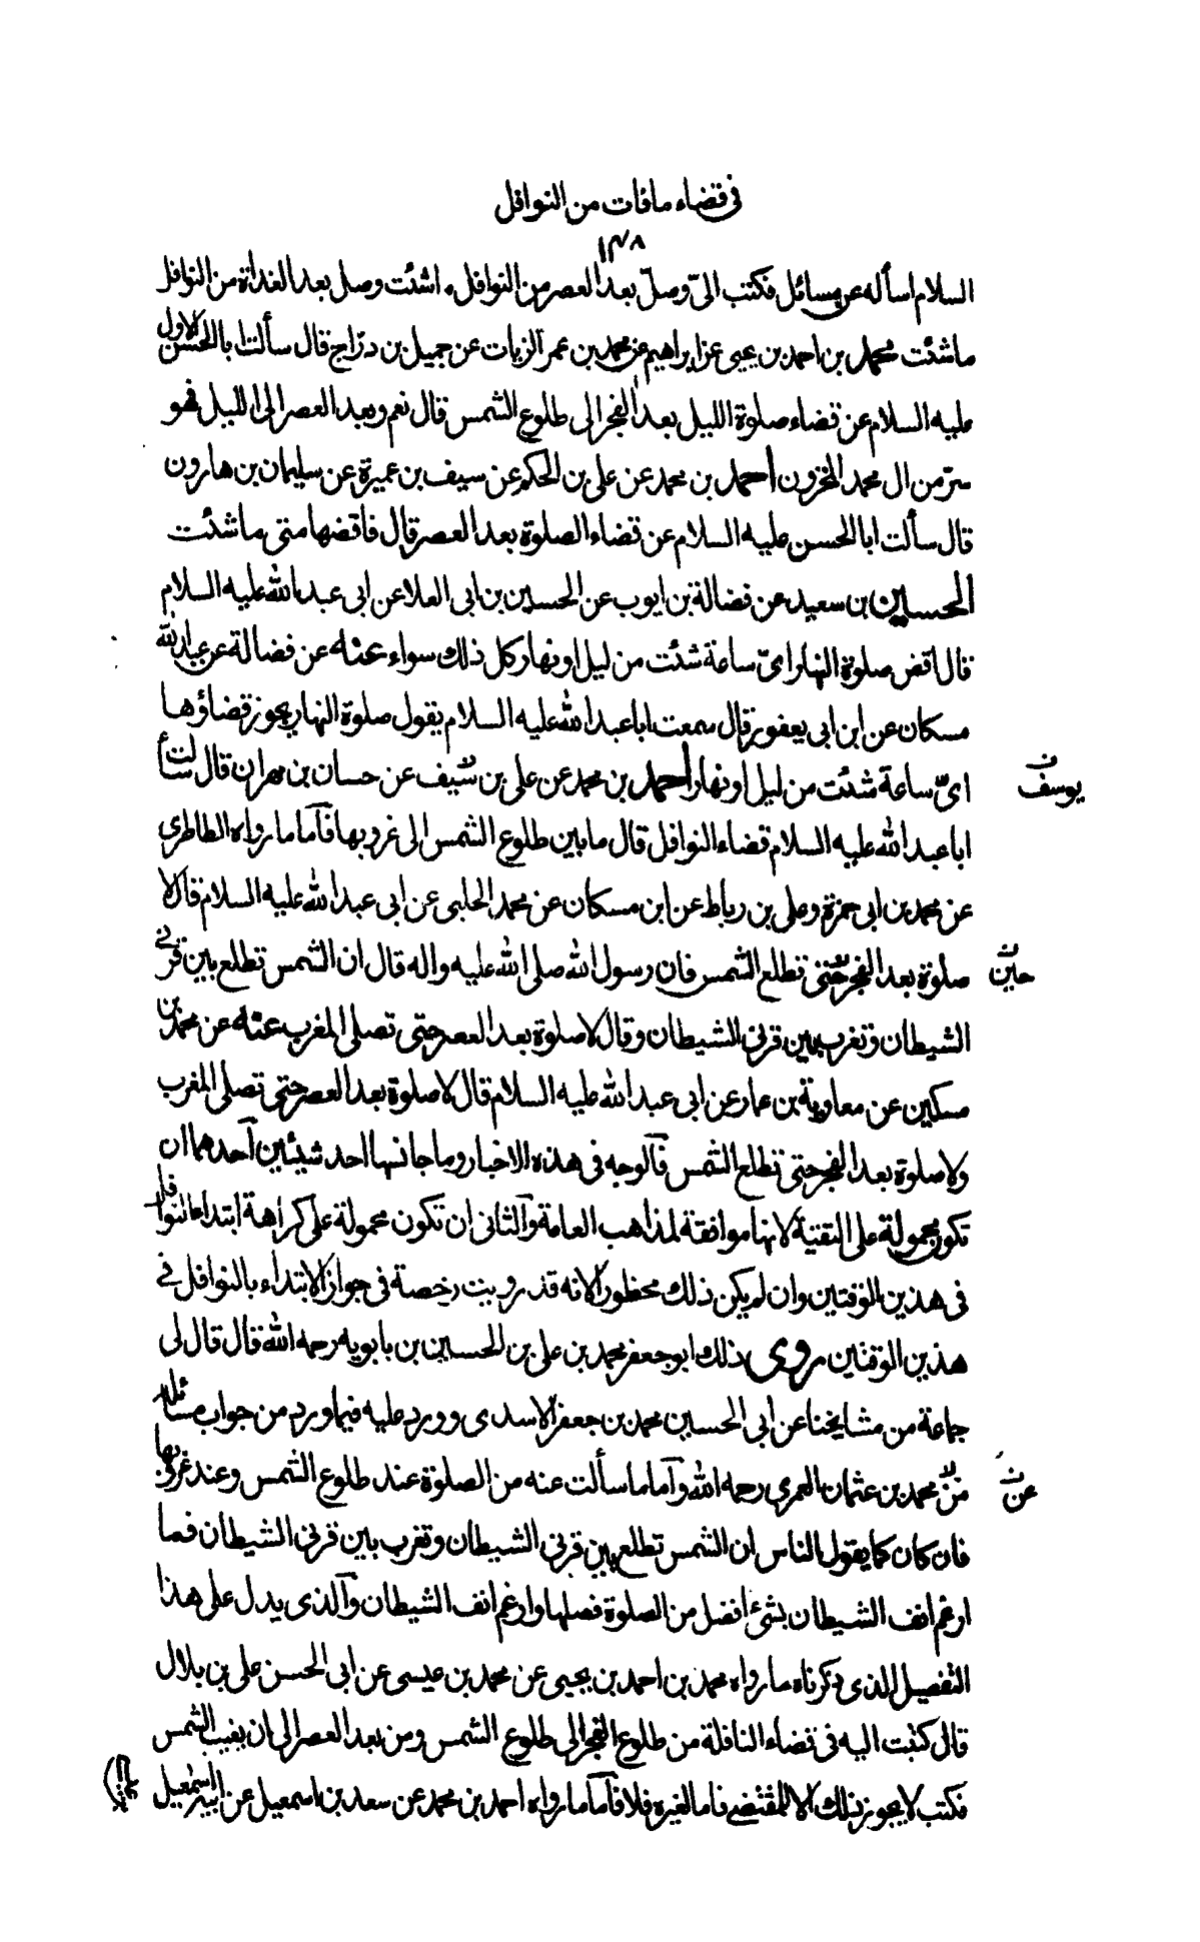 في قضاء مافات من النوافل
١٣٨
السلام اسأله عن مسائل فكتب الىّ وصلّ بعد العصر من النوافل ما شئت وصل بعد الغداة من النوافل
ما شئت محمد بن احمد بن يحيى عن ابراهيم عن محمد بن عمر الزيات عن جميل بن درّاج قال سألت ابا الحسن الاول
عليه السلام عن قضاء صلوة الليل بعد الفجر الى طلوع الشمس قال نعم وبعد العصر الى الليل فهو
سرّ من ال محمد المخزون احمد بن محمد عن على بن الحكم عن سيف بن عميرة عن سليمان بن هارون
قال سألت ابا الحسن عليه السلام عن قضاء الصلوة بعد العصر قال فاقضها متى ما شئت
الحسين بن سعيد عن فضالة بن ايوب عن الحسين بن ابى العلا عن ابى عبد الله عليه السلام
قال اقض صلوة النهار اىّ ساعة شئت من ليل او نهار كل ذلك سواء عنه عن فضالة عن عبد الله
مسكان عن ابن ابى يعفور قال سمعت ابا عبد الله عليه السلام يقول صلوة النهار يجوز قضاؤها
اىّ ساعة شئت من ليل او نهار احمد بن محمد عن على بن سيف عن حسان بن مهران قال سألت
يوسف ن
ابا عبد الله عليه السلام قضاء النوافل قال ما بين طلوع الشمس الى غروبها فأما ما رواه الطاطرى
عن محمد بن ابى حمزة وعلى بن رباط عن ابن مسكان عن محمد الحلبى عن ابى عبد الله عليه السلام قال لا
صلوة بعد الفجر حتى تطلع الشمس فان رسول الله صلى الله عليه واله قال ان الشمس تطلع بين قرنى
حين ن
الشيطان وتغرب بين قرنى الشيطان وقال لا صلوة بعد العصر حتى تصلى المغرب عنه عن محمد بن
مسكين عن معاوية بن عمار عن ابى عبد الله عليه السلام قال لا صلوة بعد العصر حتى تصلى المغرب
ولا صلوة بعد الفجر حتى تطلع الشمس فالوجه فى هذه الاخبار وما جانسها احد شيئين احدهما ان
تكون محمولة على التقيّة لانها موافقة لمذاهب العامة والثانى ان تكون محمولة على كراهة ابتداء النوافل
فى هذين الوقتين وان لم يكن ذلك محظورا لانه قد رويت رخصة فى جواز الابتداء بالنوافل فى
هذين الوقتين روى ذلك ابو جعفر محمد بن على بن الحسين بن بابويه رحمه الله قال قال لى
جماعة من مشايخنا عن ابى الحسين محمد بن جعفر الاسدى وورد عليه فيما ورد من جواب مسائله
من محمد بن عثمان العمرى رحمه الله وأما ما سألت عنه من الصلوة عند طلوع الشمس وعند غروبها
عن ن
فان كان كما يقول الناس ان الشمس تطلع بين قرنى الشيطان وتغرب بين قرنى الشيطان فما
ارغم انف الشيطان بشئ افضل من الصلوة فصلها وارغم انف الشيطان والذى يدل على هذا
التفصيل الذى ذكرناه ما رواه محمد بن احمد بن يحيى عن محمد بن عيسى عن ابى الحسن على بن بلال
قال كتبت اليه فى قضاء النافلة من طلوع الفجر الى طلوع الشمس ومن بعد العصر الى ان يغيب الشمس
فكتب لا يجوز ذلك الا للمقتضى فاما لغيره فلا فأما ما رواه احمد بن محمد عن سعد بن اسمعيل عن ابيه اسمعيل